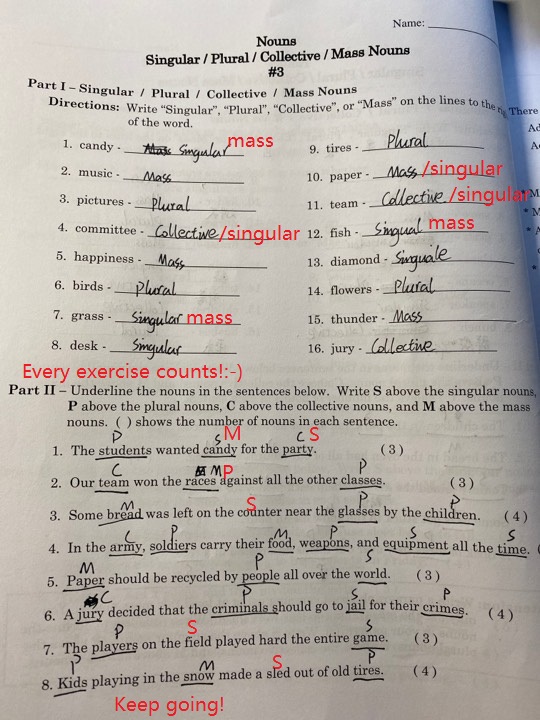 Name:
Nouns
Singular / Plural / Collective / Mass Nouns
#3
Part I – Singular / Plural / Collective / Mass Nouns
Directions: Write “Singular”, “Plural”, “Collective”, or “Mass” on the lines to the There
of the word.
1. candy - Singular mass
2. music - Mass
3. pictures - Plural
4. committee - Collective/singular
5. happiness - Mass
6. birds - Plural
7. grass - Singular mass
8. desk - Singular
9. tires - Plural
10. paper - Mass/singular
11. team - Collective/singular
12. fish - Singual mass
13. diamond - Singuale
14. flowers - Plural
15. thunder - Mass
16. jury - Collective
Every exercise counts!:-)
Part II – Underline the nouns in the sentences below. Write S above the singular nouns,
P above the plural nouns, C above the collective nouns, and M above the mass
nouns. ( ) shows the number of nouns in each sentence.
P S M C S
1. The students wanted candy for the party. (3)
C M P P
2. Our team won the races against all the other classes. (3)
M S P P
3. Some bread was left on the counter near the glasses by the children. (4)
C P M P S S
4. In the army, soldiers carry their food, weapons, and equipment all the time. (
M P S
5. Paper should be recycled by people all over the world. (3)
C P S P
6. A jury decided that the criminals should go to jail for their crimes. (4)
P S S
7. The players on the field played hard the entire game. (3)
P M S P
8. Kids playing in the snow made a sled out of old tires. (4)
Keep going!